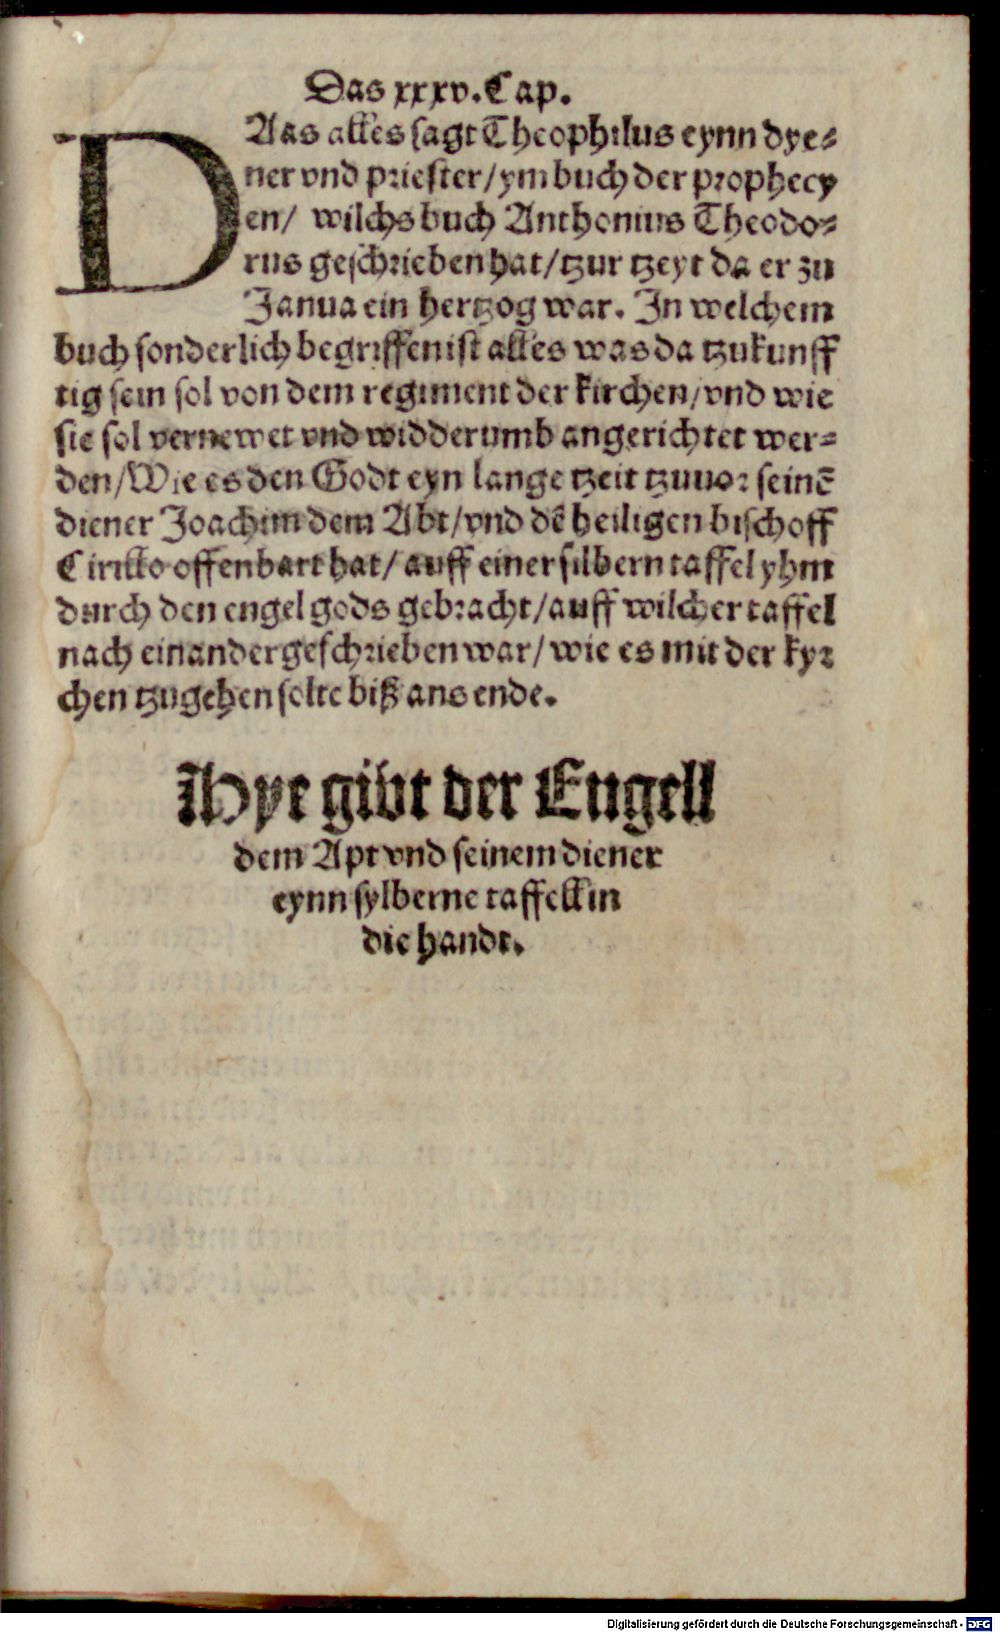 Das xxxv. Cap.
DAas alles sagt Theophilus eynn dye-
ner vnd priester/ ym buch der prophecy
en/ wilchs buch Anthonius Theodo-
rus geschrieben hat/ tzur tzeyt da er zu
Janua ein hertzog war. In welchem
buch sonderlich begriffen ist alles was da tzukunff
tig sein sol von dem regiment der kirchen/ vnd wie
sie sol vernewet vnd widderumb angerichtet wer-
den/ Wie es den Godt eyn lange tzeit tzuuor seinē
diener Joachim dem Abt/ vnd dē heiligen bischoff
Cirillo offenbart hat/ auff einer silbern taffel yhm
durch den engel gods gebracht/ auff wilcher taffel
nach einander geschrieben war/ wie es mit der kyr
chen tzugehen solte biß ans ende.
Hye gibt der Engell
dem Apt vnd seinem diener
eynn sylberne taffell in
die handt.
Digitalisierung gefördert durch die Deutsche Forschungsgemeinschaft - DFG